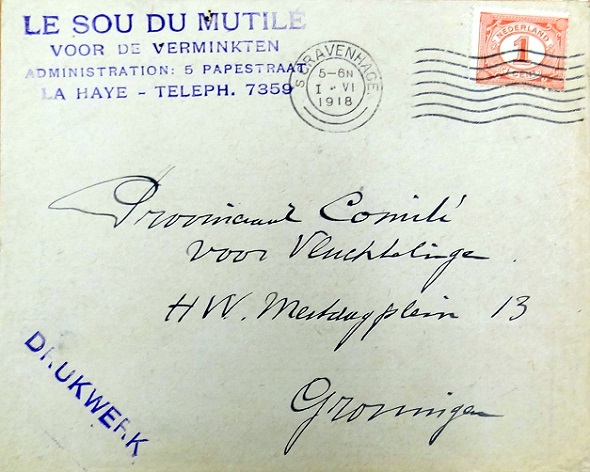 LE SOU DU MUTILÉ
VOOR DE VERMINKTEN
ADMINISTRATION: 5 PAPESTRAAT
LA HAYE - TELEPH. 7359
S GRAVENHAGE
5-6N
I - VI
1918
NEDERLAND
1
CENT
Provinciaal Comité
voor Vluchtelinge
H W. Mesdagplein 13
Groningen
DRUKWERK